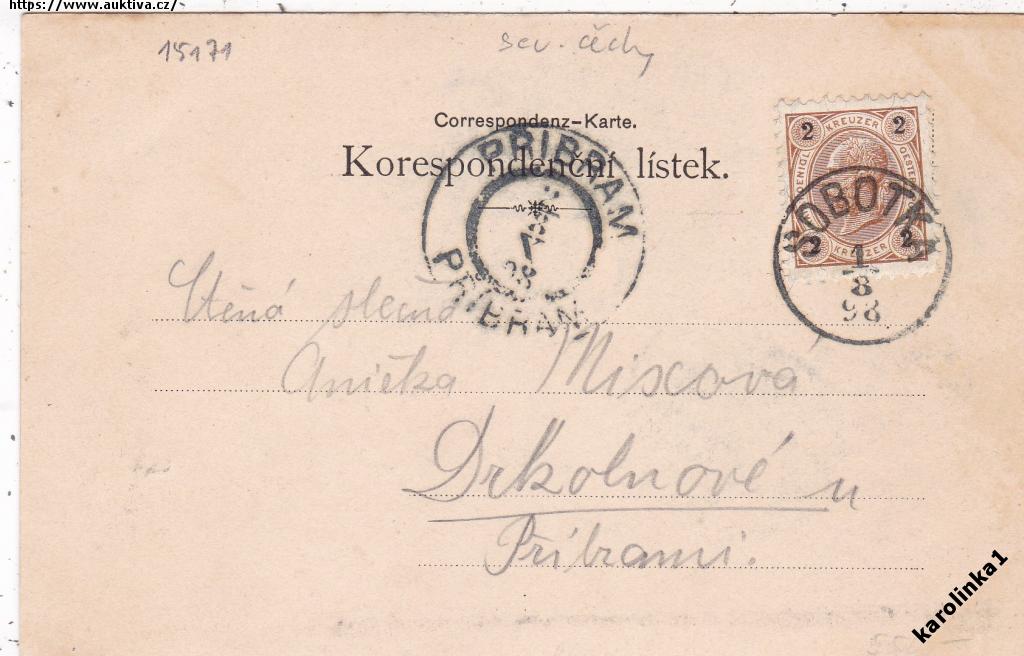 https://www.auktiva.cz/
15171
sev. čechy
Correspondenz-Karte.
Korespondenční lístek.
PŘIBRAM
PŘIBRAM
2 KREUZER 2
2 KREUZER 2
SOBOTKA
1
8
98
Ctěná slečna
Anička Mixova
Drkolnové u
Příbrami.
karolinka1